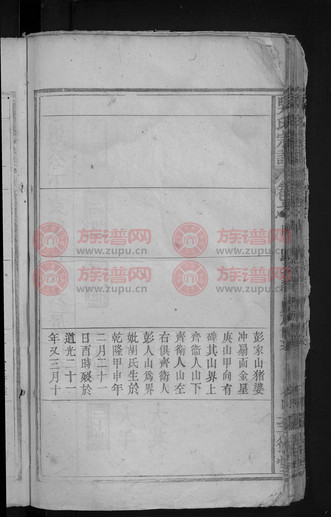 彭家山猪婆
冲扇面金星
庚山甲向有
碑其山界上
齊衛人山下
齊衛人山左
右俱齊衛人
彭人山為界
妣胡氏生於
乾隆甲申年
二月二十一
日酉時歿於
道光二十一
年又三月十
族谱网
www.zupu.cn
族谱网
www.zupu.cn
族谱网
www.zupu.cn
族谱网
www.zupu.cn